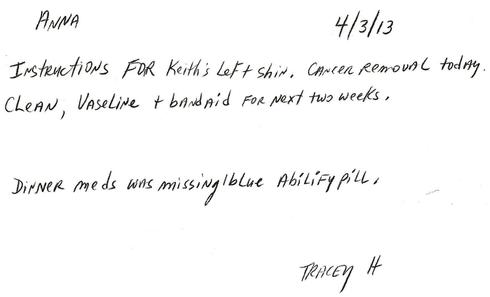 Anna 4/3/13
Instructions for Keith's left shin. Cancer removal today.
Clean, Vaseline + bandaid for next two weeks.
Dinner meds was missing 1 blue Abilify pill.
Tracey H